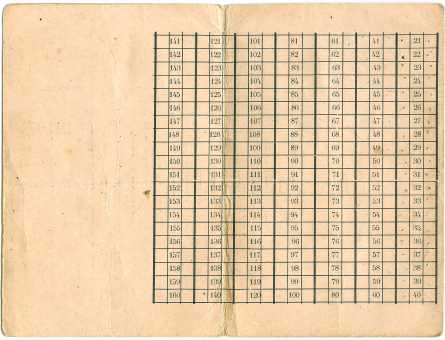 141 121 101 81 61 41 21
142 122 102 82 62 42 22
143 123 103 83 63 43 23
144 124 104 84 64 44 24
145 125 105 85 65 45 25
146 126 106 86 66 46 26
147 127 107 87 67 47 27
148 128 108 88 68 48 28
149 129 109 89 69 49 29
150 130 110 90 70 50 30
151 131 111 91 71 51 31
152 132 112 92 72 52 32
153 133 113 93 73 53 33
154 134 114 94 74 54 34
155 135 115 95 75 55 35
156 136 116 96 76 56 36
157 137 117 97 77 57 37
158 138 118 98 78 58 38
159 139 119 99 79 59 39
160 140 120 100 80 60 40